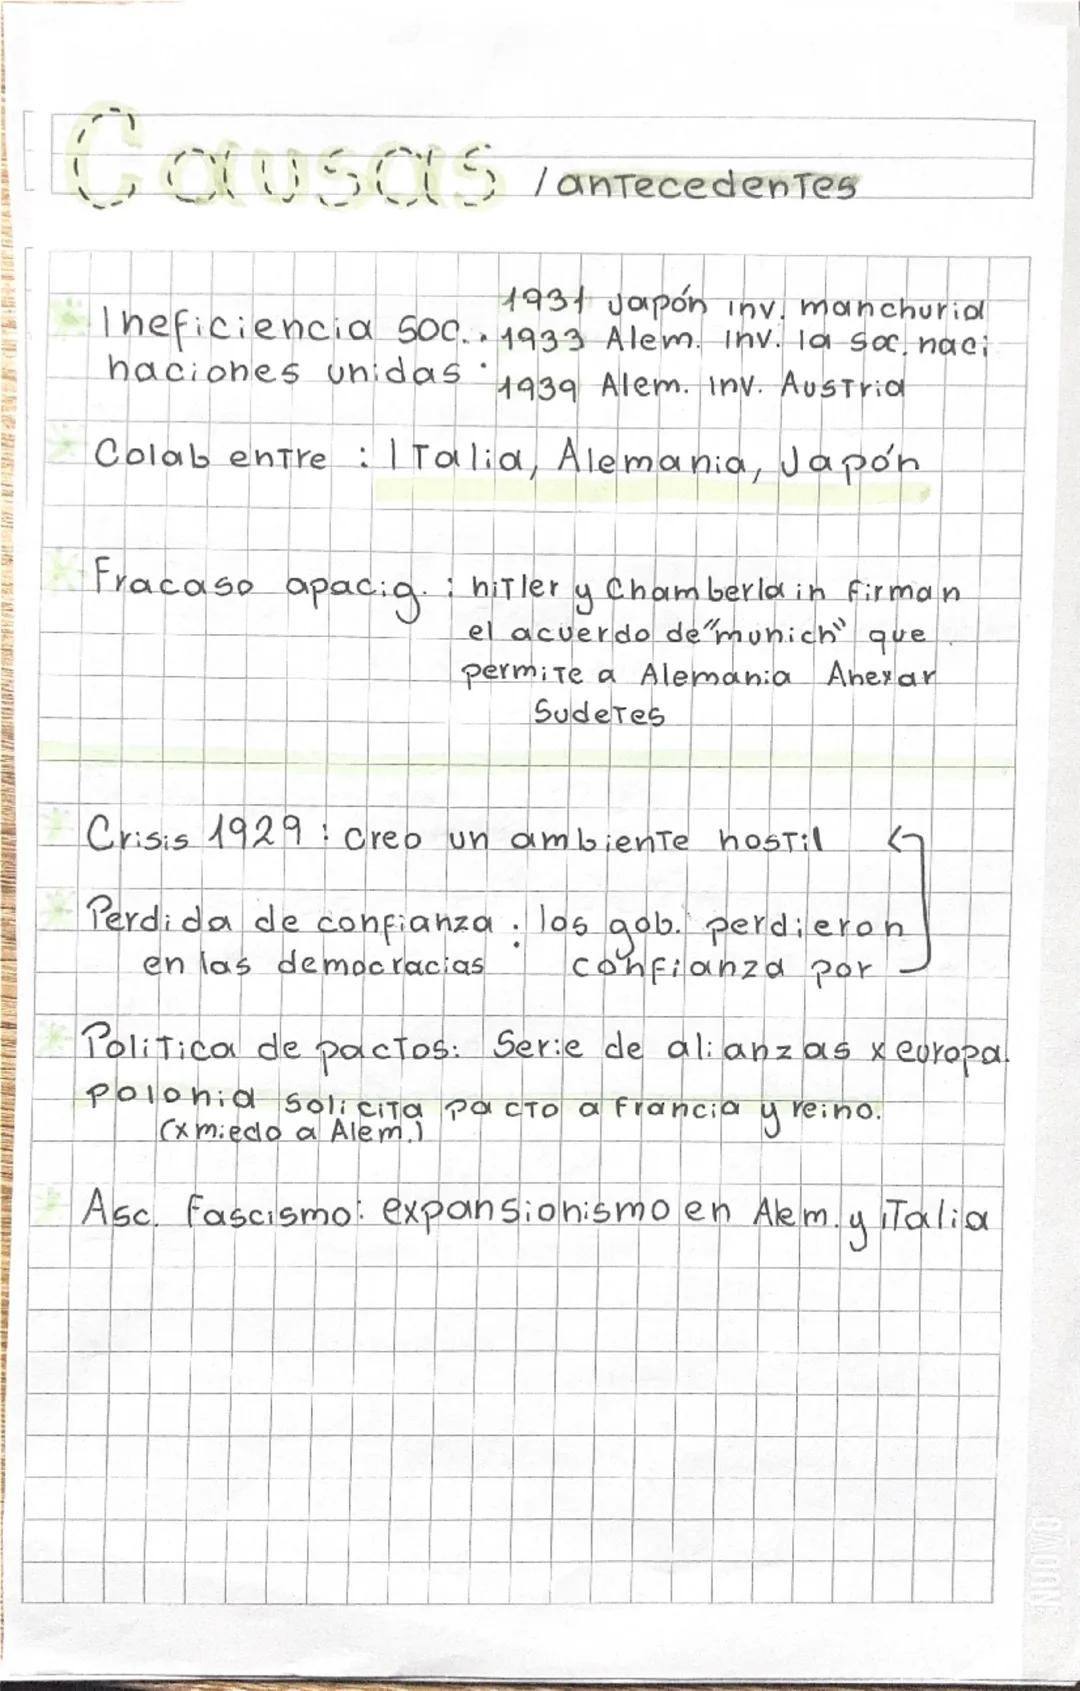 Causas / antecedentes
1931 Japón inv. manchuria
Ineficiencia soc. : 1933 Alem. inv. la soc. naci
naciones unidas : 1939 Alem. inv. Austria
Colab entre : Italia, Alemania, Japón
Fracaso apacig. : hitler y Chamberlain firman
el acuerdo de "munich" que
permite a Alemania Anexar
Sudetes
Crisis 1929 : creo un ambiente hostil
Perdida de confianza : los gob. perdieron
en las democracias confianza por
Politica de pactos: Serie de alianzas x europa.
polonia solicita pacto a francia y reino.
(x miedo a Alem.)
Asc. Fascismo: expansionismo en Alem. y italia
NUOVO